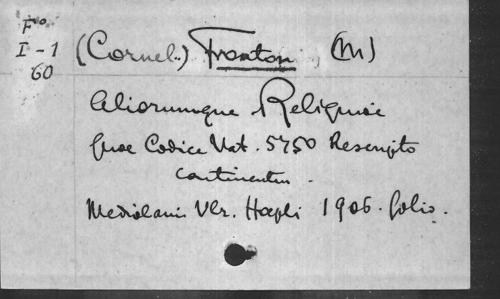 Fo.
I-1
60
(Cornel.) Fronton, (M)
Aliorumque Reliquiae
quae Codice Vat. 5750 Rescripto
continentur.
Mediolani Ulr. Hoepli 1906. folio.